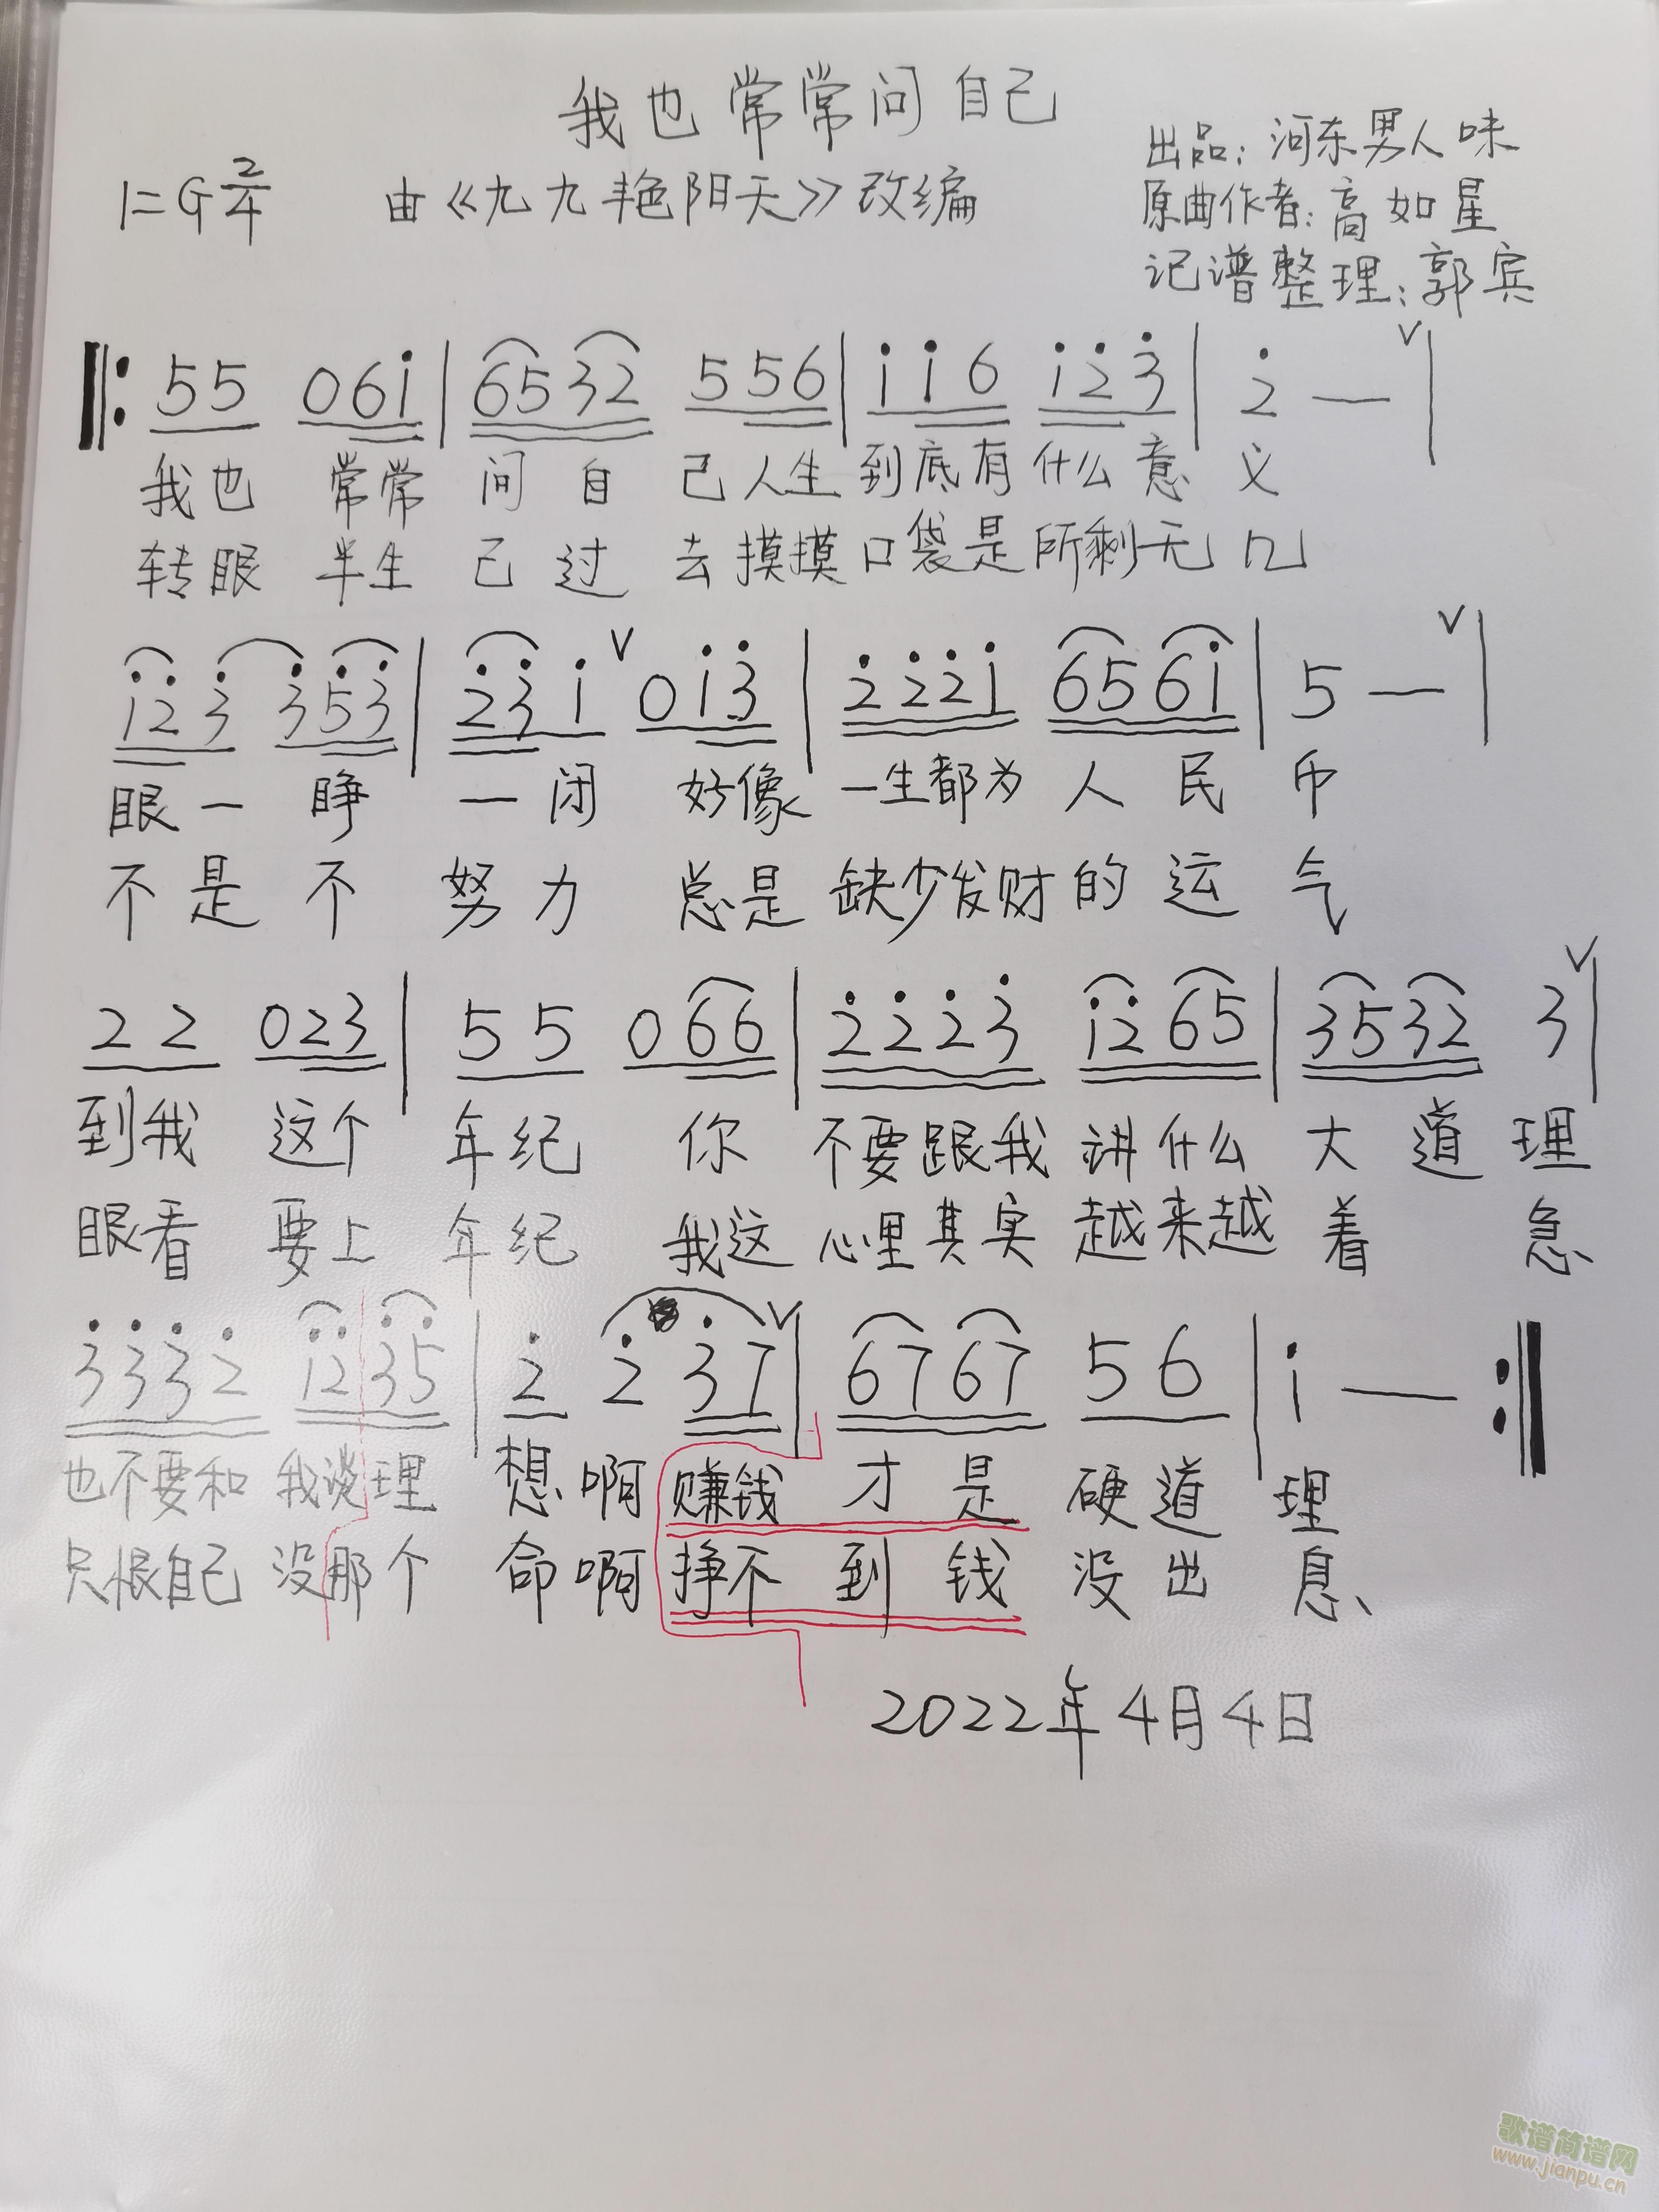 我也常常问自己
1=G 2/4 由《九九艳阳天》改编
出品：河东男人味
原曲作者：高如星
记谱整理：郭宾
‖: 5 5 0 6 i̇ | 6 5 3 2 5 5 6 | i̇ i̇ 6 i̇ 2̇ 3̇ | 2̇ — ∨ |
我也 常常 问 自 己人生 到底有 什么意 义
转眼 半生 已 过 去摸摸 口袋是 所剩无 几
i̇ 2̇ 3̇ 3̇ 5̇ 3̇ | 2̇ 3̇ i̇ ∨ 0 i̇ 3̇ | 2̇ 2̇ 2̇ i̇ 6 5 6 i̇ | 5 — ∨ |
眼一 睁 一闭 好像 一生都为 人 民 币
不是 不 努力 总是 缺少发财 的 运 气
2 2 0 2 3 | 5 5 0 6 6 | 2̇ 2̇ 2̇ 3̇ i̇ 2̇ 6 5 | 3 5 3 2 3 ∨ |
到我 这个 年纪 你 不要跟我 讲什么 大 道 理
眼看 要上 年纪 我这 心里其实 越来越 着 急
3̇ 3̇ 3̇ 2̇ i̇ 2̇ 3̇ 5̇ | 2̇ 2̇ 3̇ 7 ∨ | 6 7 6 7 5 6 | i̇ — :‖
也不要和 我谈理 想 啊 赚钱 才 是 硬道 理
只恨自己 没那个 命 啊 挣不 到 钱 没出 息
2022年4月4日
歌谱简谱网
www.jianpu.cn